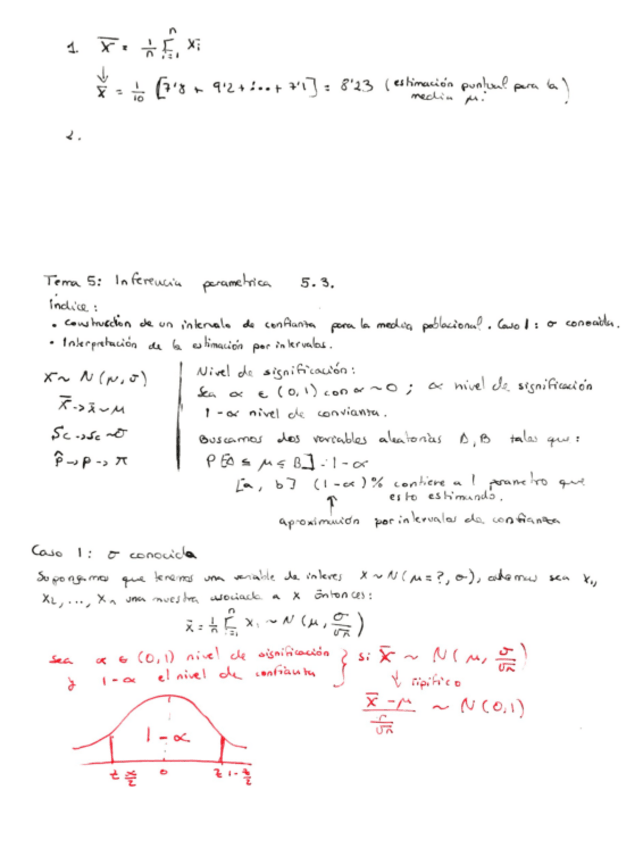 1. X̄ = 1/n Σ_{i=1}^{n} Xi
↓
x̄ = 1/10 [7'8 + 9'2 + ... + 7'1] = 8'23 (estimación puntual para la media μ.)
2.
Tema 5: Inferencia parametrica 5.3.
Índice:
• Construcción de un intervalo de confianza para la media poblacional. Caso 1: σ conocida.
• Interpretación de la estimación por intervalos.
X ~ N(μ, σ)
X̄ -> x̄ ~ μ
Sc -> sc ~ σ
P̂ -> p -> π
Nivel de significación:
Sea α ∈ (0,1) con α ~ 0 ; α nivel de significación
1 - α nivel de convianza.
Buscamos dos variables aleatorias A, B tales que:
P[A ≤ μ ≤ B] = 1 - α
[a, b] (1-α)% contiene al parametro que
esto estimando.
↑
aproximación por intervalos de confianza
Caso 1: σ conocida
Supongamos que tenemos una variable de interes X ~ N(μ=?, σ), ademas sea X1,
X2, ..., Xn una muestra asociada a X Entonces:
x̄ = 1/n Σ_{i=1}^{n} Xi ~ N(μ, σ/√n)
Sea α ∈ (0,1) nivel de significación
y 1-α el nivel de confianza
si X̄ ~ N(μ, σ/√n)
↓ tipifico
(X̄ - μ)/(σ/√n) ~ N(0,1)
1 - α
z α/2 0 z 1-α/2